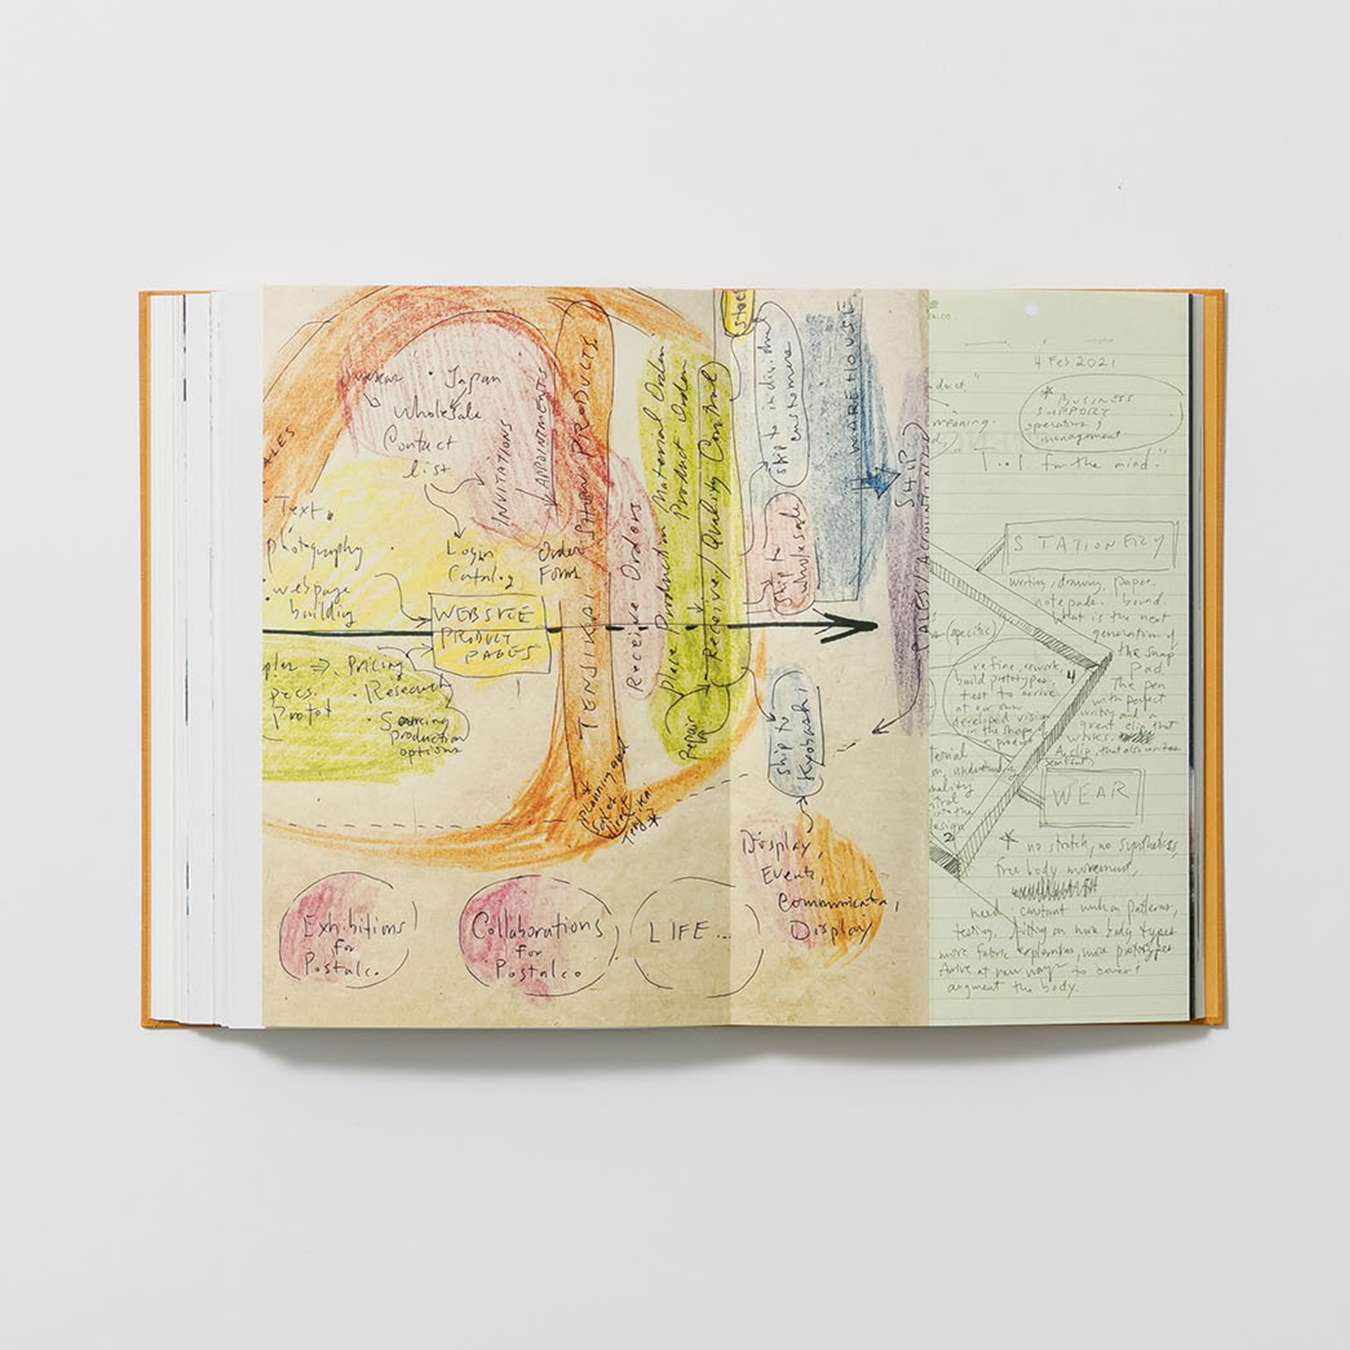 ALES
Japan
Wholesale
Contact
list
INVITATIONS
APPOINTMENTS
TENJIKAI SHOW PRODUCTS
Text,
photography
webpage
building
Catalog
Order
Forms
WEBSITE
PRODUCT
PAGES
pricing
Research
Sourcing
production
options
planning and
Receive Orders
Place Production Material Order
Product Order
Receive / Quality Control
Repair
ship to individual
customers
ship to
wholesale
WAREHOUSE
SHIP
SALES / ACCOUNTING
ship to
Kyobashi
Display,
Events,
Communication,
Display
Exhibitions
for
Postalco
Collaborations
for
Postalco
LIFE...
ALCO
4 Feb 2021
duct."
* BUSINESS
SUPPORT
operations,
management
meaning.
for the mind."
STATIONERY
writing, drawing, paper.
note pads. bound.
what is the next
generation of
the snap
pad.
The pen
with perfect
writing and a
great clip that
works.
A clip that also
(specific)
refine, rework,
build prototypes,
test to arrive
at our own
developed vision
in the shape of
a product
4
ternal
WEAR
2
* no stretch, no synthetics,
free body movement,
need constant work on patterns,
testing, fitting on more body types
more fabric explorations, more prototypes
Arrive at new ways to cover &
augment the body.